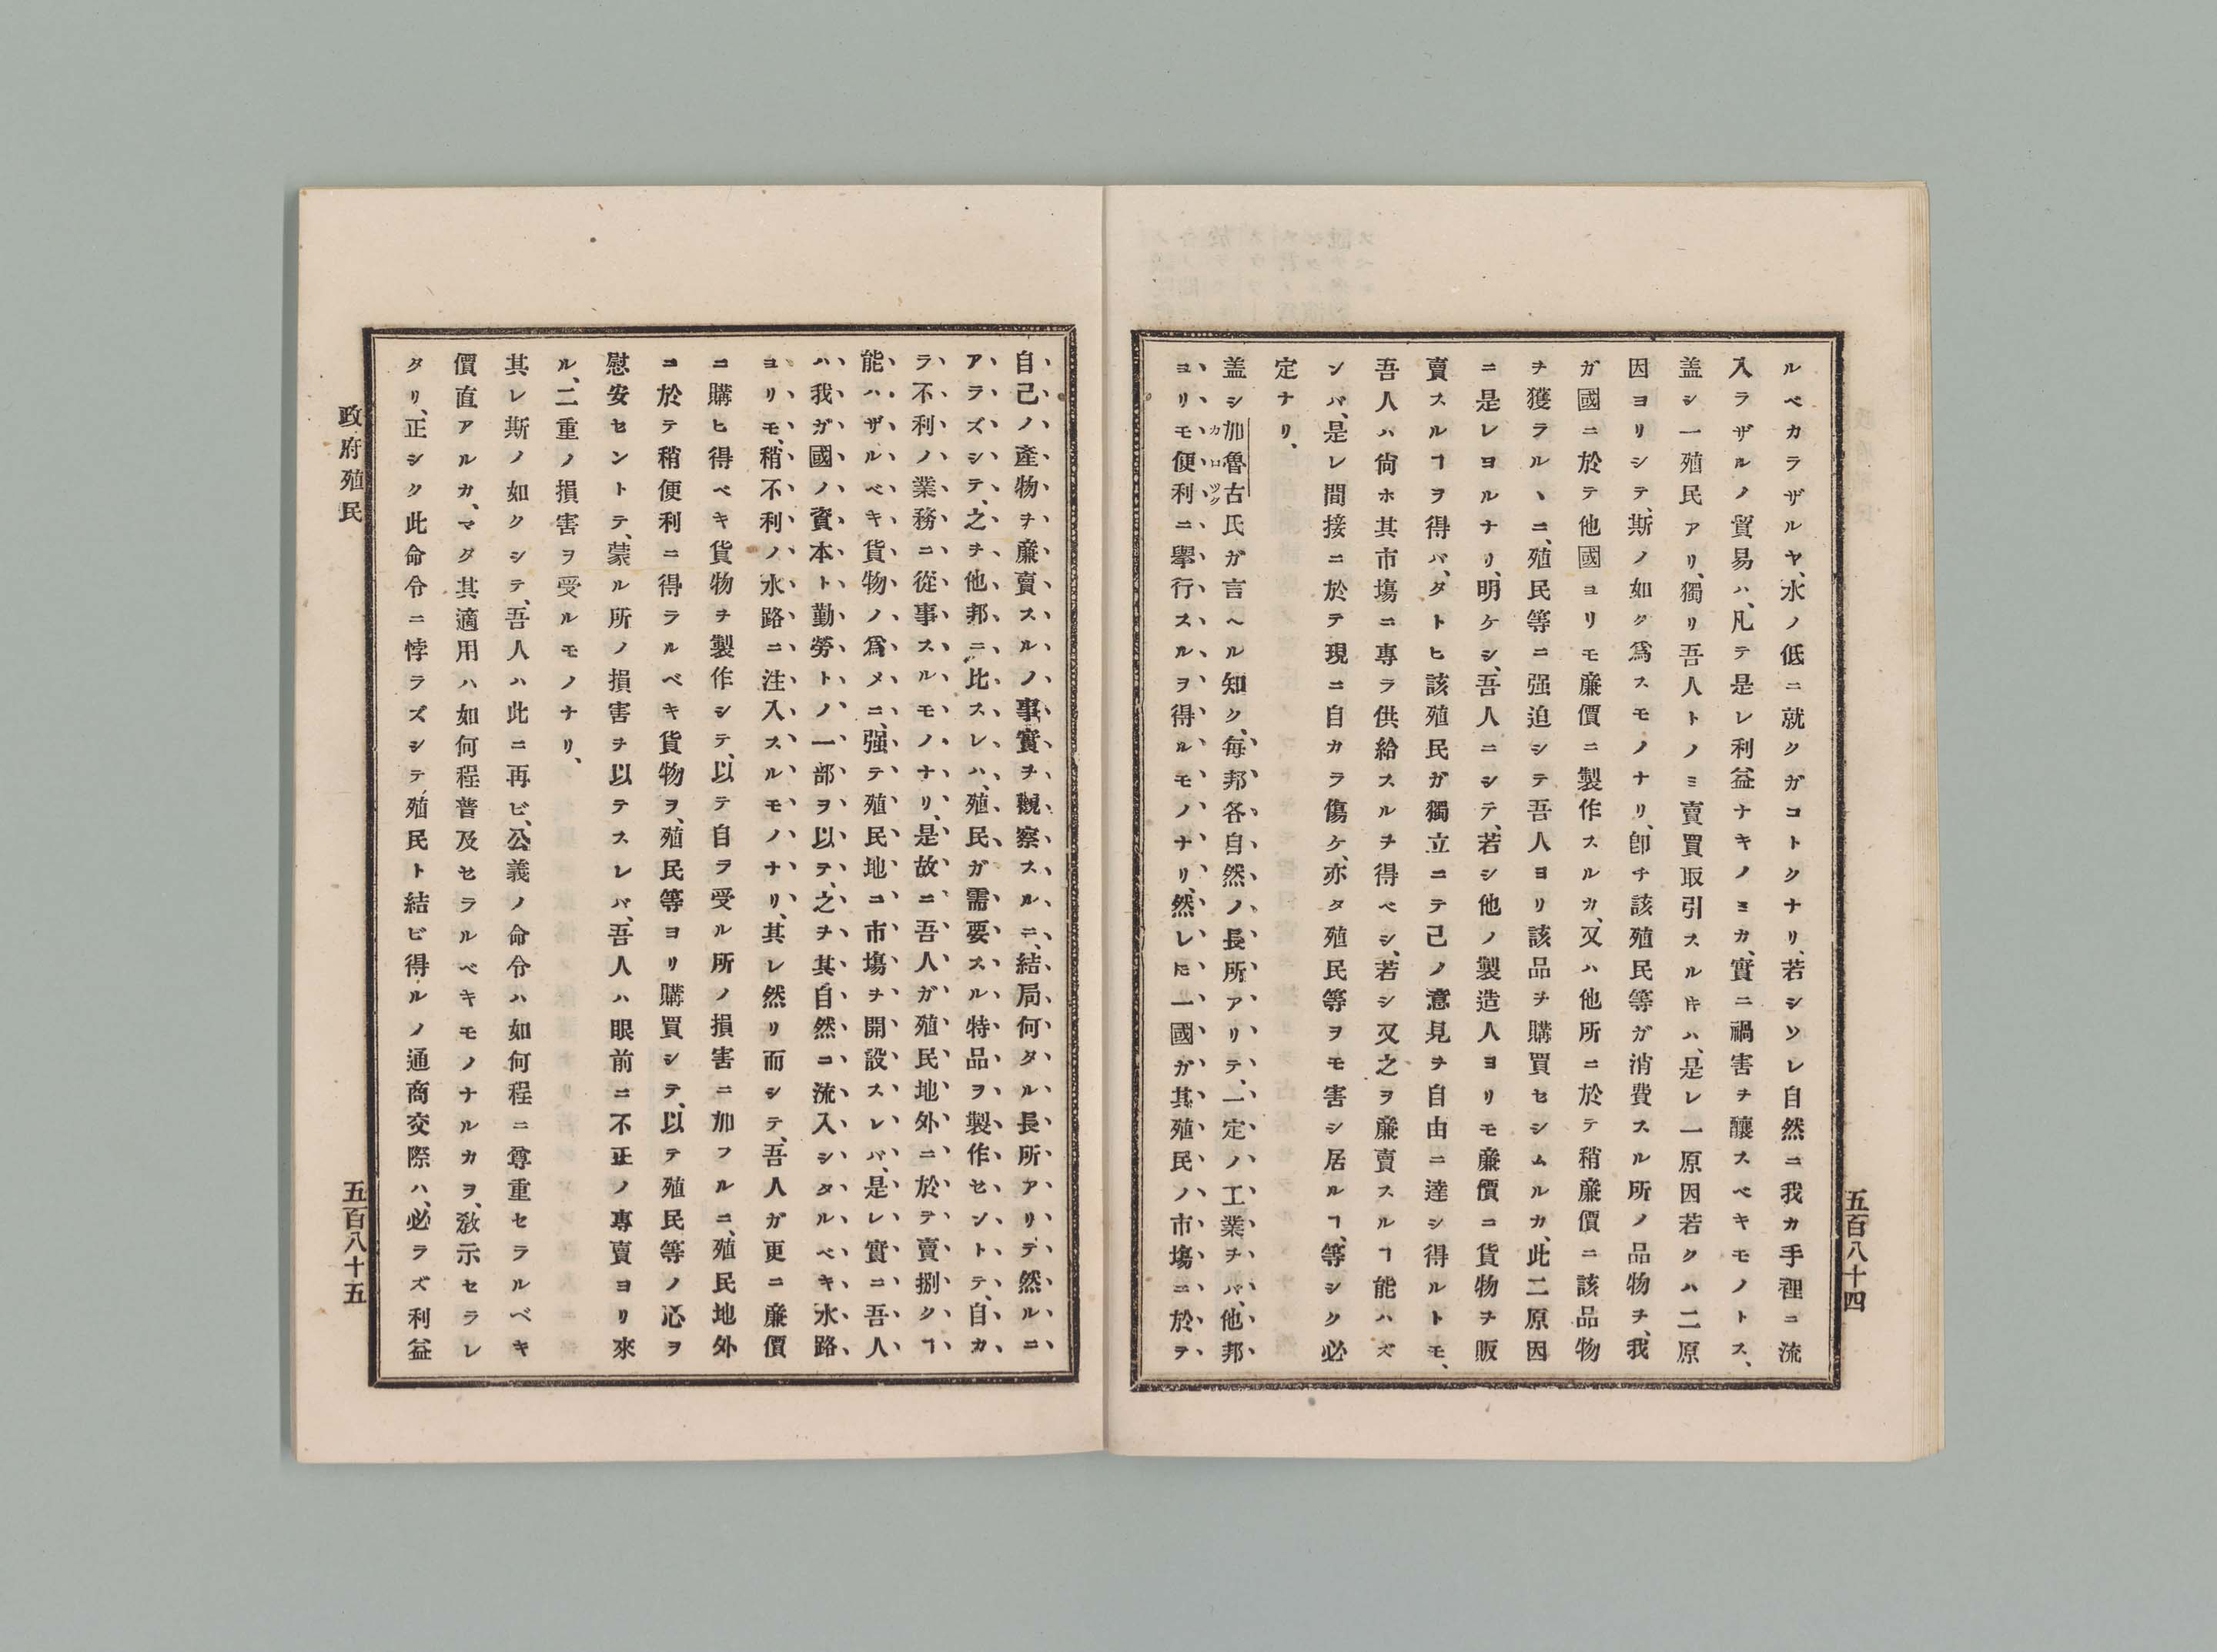 五百八十四
ルベカラザルヤ、水ノ低ニ就クガコトクナリ、若シソレ自然ニ我カ手裡ニ流
入ラザルノ貿易ハ、凡テ是レ利益ナキノミカ、實ニ禍害ヲ釀スベキモノトス、
盖シ一殖民アリ、獨リ吾人トノミ賣買取引スルキハ、是レ一原因若クハ二原
因ヨリシテ、斯ノ如ク爲スモノナリ、卽チ該殖民等ガ消費スル所ノ品物ヲ、我
ガ國ニ於テ他國ヨリモ廉價ニ製作スルカ、又ハ他所ニ於テ稍廉價ニ該品物
ヲ獲ラルヽニ、殖民等ニ强迫シテ吾人ヨリ該品ヲ購買セシムルカ、此二原因
ニ是レヨルナリ、明ケシ、吾人ニシテ、若シ他ノ製造人ヨリモ廉價ニ貨物ヲ販
賣スルヿヲ得バ、タトヒ該殖民ガ獨立ニテ己ノ意見ヲ自由ニ達シ得ルトモ、
吾人ハ尙ホ其市塲ニ專ラ供給スルヲ得ベシ、若シ又之ヲ廉賣スルヿ能ハズ
ンバ、是レ間接ニ於テ現ニ自カラ傷ケ、亦タ殖民等ヲモ害シ居ルヿ、等シク必
定ナリ、
盖シ加魯古氏ガ言ヘル如ク、每邦各自然ノ長所アリテ、一定ノ工業ヲバ、他邦
カロック
ヨリモ便利ニ擧行スルヲ得ルモノナリ、然レ𪜈一國ガ其殖民ノ市塲ニ於テ
自己ノ產物ヲ廉賣スルノ事實ヲ觀察スルニ、結局何タル長所アリテ然ルニ
アラズシテ、之ヲ他邦ニ比スレハ、殖民ガ需要スル特品ヲ製作セントテ、自カ
ラ不利ノ業務ニ從事スルモノナリ、是故ニ吾人ガ殖民地外ニ於テ賣捌クヿ
能ハザルベキ貨物ノ爲メニ、强テ殖民地ニ市塲ヲ開設スレバ、是レ實ニ吾人
ハ我ガ國ノ資本ト勤勞トノ一部ヲ以テ、之ヲ其自然ニ流入シタルベキ水路
ヨリモ、稍不利ノ水路ニ注入スルモノナリ、其レ然リ而シテ、吾人ガ更ニ廉價
ニ購ヒ得ベキ貨物ヲ製作シテ、以テ自ヲ受ル所ノ損害ニ加フルニ、殖民地外
ニ於テ稍便利ニ得ラルベキ貨物ヲ、殖民等ヨリ購買シテ、以テ殖民等ノ心ヲ
慰安セントテ、蒙ル所ノ損害ヲ以テスレバ、吾人ハ眼前ニ不正ノ專賣ヨリ來
ル、二重ノ損害ヲ受ルモノナリ、
其レ斯ノ如クシテ、吾人ハ此ニ再ビ、公義ノ命令ハ如何程ニ尊重セラルベキ
價直アルカ、マダ其適用ハ如何程普及セラルベキモノナルカヲ、敎示セラレ
タリ、正シク此命令ニ悖ラズシテ、殖民ト結ビ得ルノ通商交際ハ、必ラズ利益
政府殖民
五百八十五